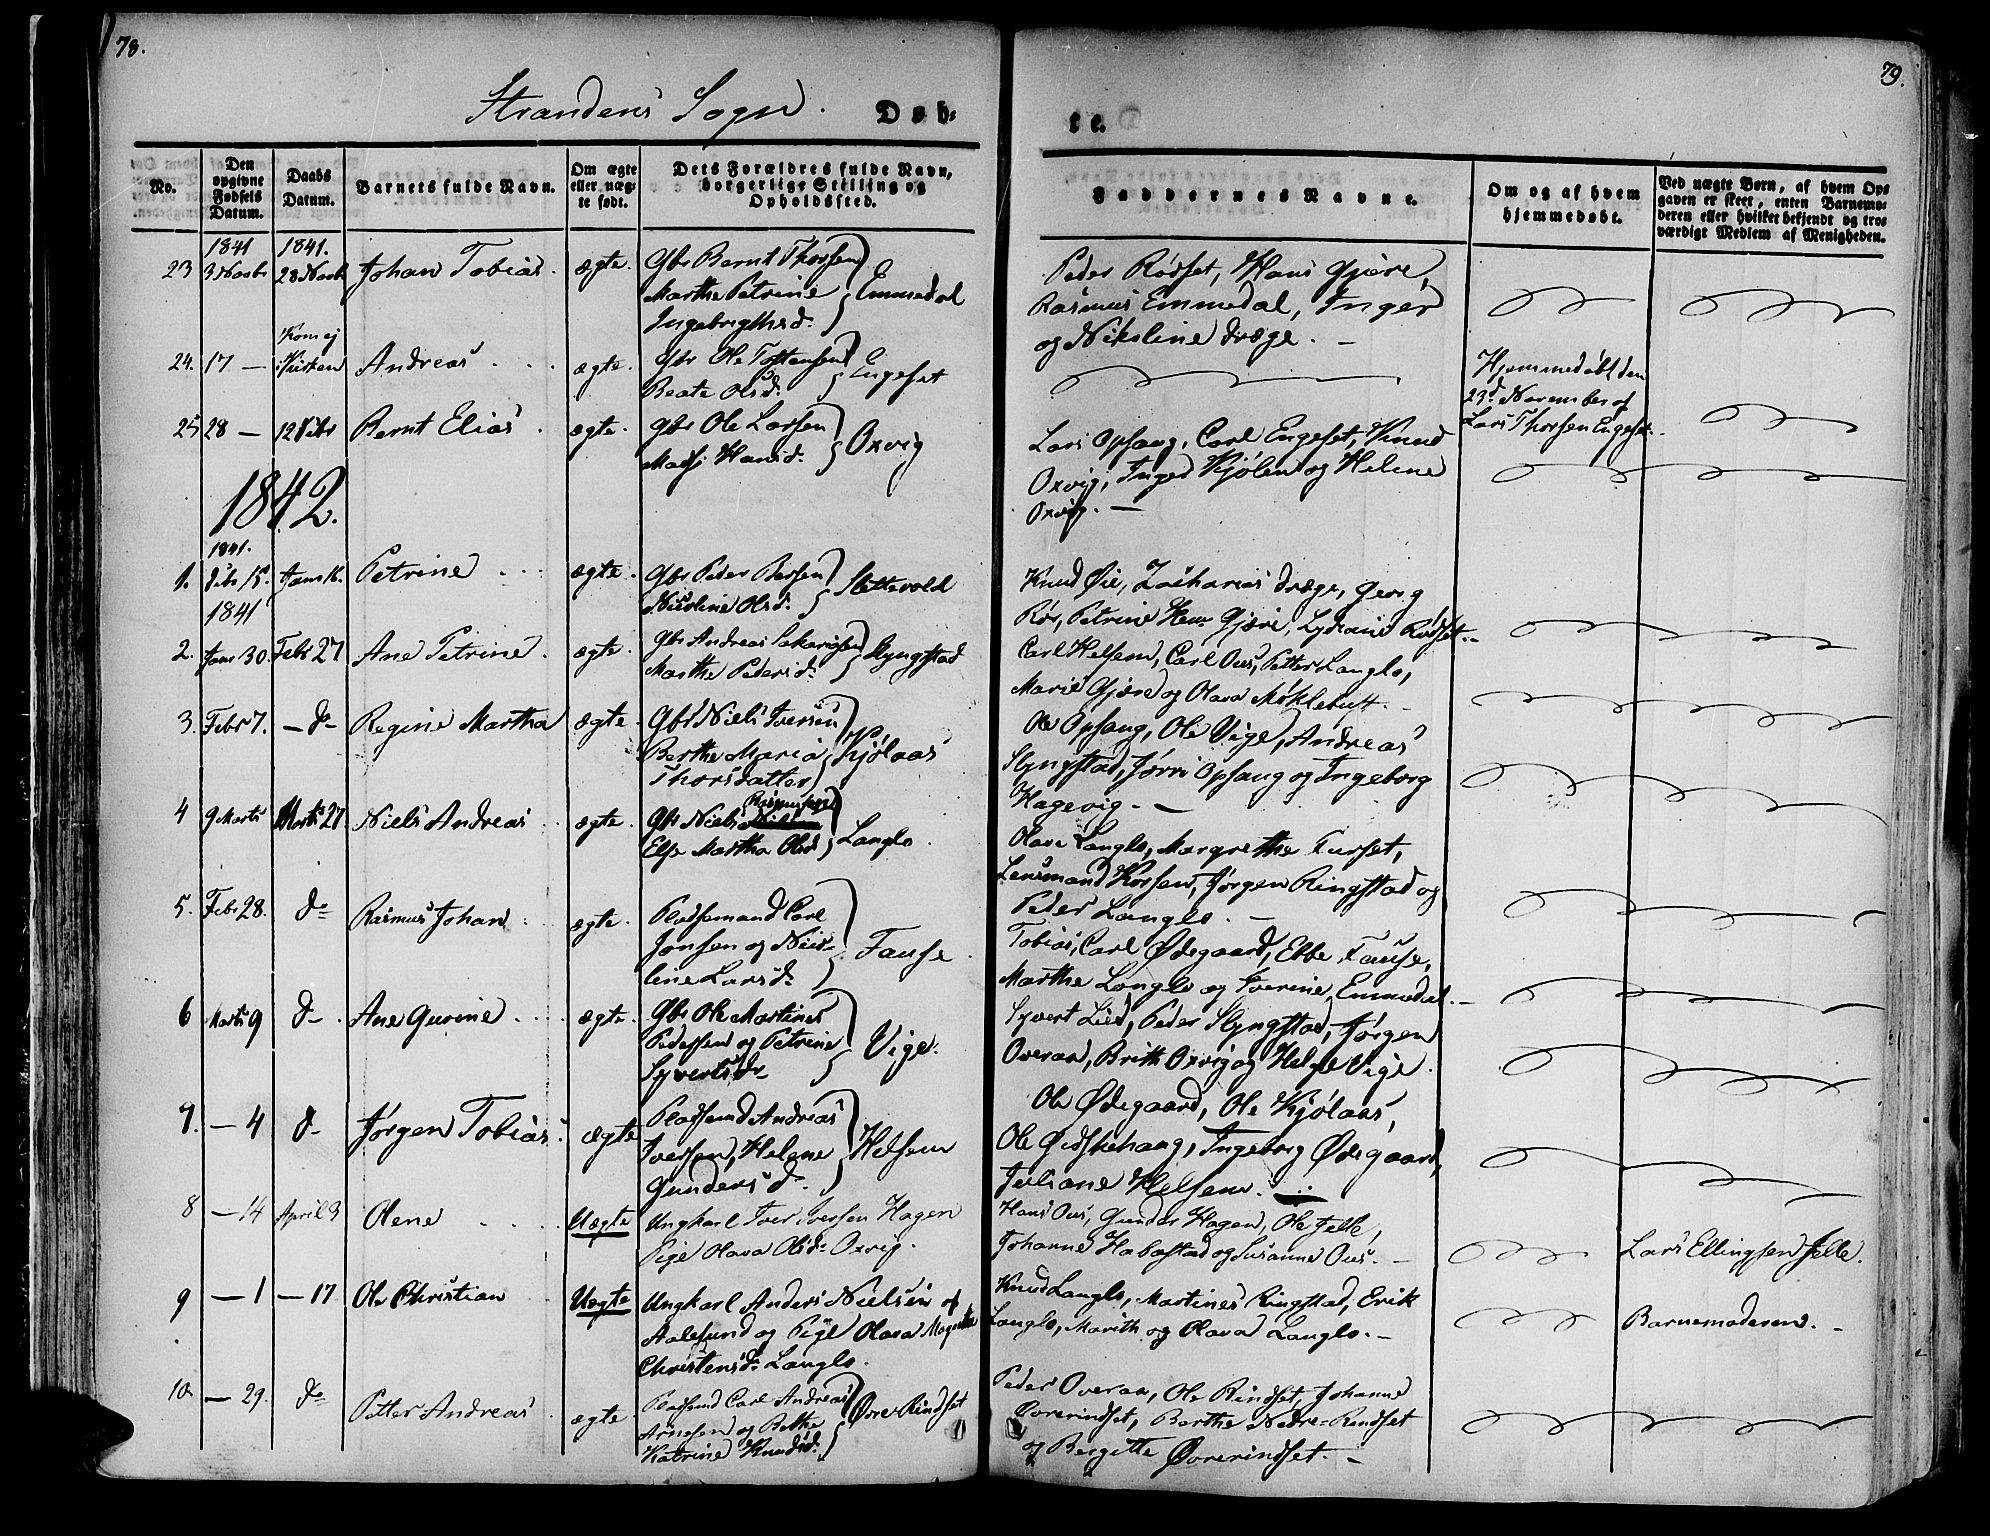 78.
Strandens Sogn. Døb-
No.
Den opgivne Fødsels Datum.
Daabs Datum.
Barnets fulde Navn.
Om ægte eller uægte født.
Dets Forældres fulde Navn, borgerlige Stilling og Opholdssted.
1841 1841.
23 3 Novbr 28 Novbr Johan Tobias. ægte. Gbr Bernt Thorsen
Marthe Petrine Emmedal
Ingebrigthsd.
Kom ej
24. 17 — Kirken Andreas ægte. Gbr Ole Tostensen
Beate Olsd. Engeset
25 28 — 12 Debr Bernt Elias. ægte. Gbr Ole Larsen
Hansd. Oxvig
1842.
1841.
1. Debr 15. Janr 16. Petrine ægte. Gbr Peder
Nicoline Olsd. Slettevold
1841
2. Janr 30. Febr 27 Ane Petrine. ægte. Gbr Andreas Sakariasen
Marthe Pedersd. Slyngstad
3. Febr 7. — do — Regine Martha ægte. Gbr Niels Iversen
Berthe Maria Kjølaas
Thorsdatter
4 9 Marts Marts 27 Niels Andreas ægte. Gbr Niels Rasmussen
Else Martha Olsd. Langlo.
5. Febr 28. do Rasmus Johan ægte. Pladsemand Carl
Jonsen og Nico-
line Larsd. Fause.
6 Marts 9 do Ane Gurine ægte. Gbr Ole Martines
Pedersen og Petrine
Syvertsdr Vige.
7. — 4 do Jørgen Tobias. ægte Pladsmd Andreas
Iversen, Helene Helsem
Gundersd.
8 — 14 April 3 Olene Uægte Ungkarl Iver Iversen Hagen
Pige Olava Olsd. Oxvig.
9 — 1 — 17 Ole Christian Uægte Ungkarl Anders Nielsen af
Aalesund og Pige Olava
Christensd. Langlo.
10. — 29. do Petter Andreas ægte. Pladsmd Carl Andreas
Arnesen og
Katrine Knudsd. Øvre Rindset
79.
te.
Faddernes Navne.
Om og af hvem hjemmedøbt.
Ved uægte Børn, af hvem Opgaven er skeet, enten Barnemoderen eller hvilket bekjendt og troværdigt Medlem af Menigheden.
Peder Rødset, Hans Gjære,
Rasmus Emmedal, Inger
og Nikoline Dræge. —
Hjemmedøbt den
23d November af
Lars Thorsen Engeset.
Lars Opsang, Carl Engeset, Knud
Oxvig, Inger Kjølen og Helene
Oxvig. —
Knud Øie, Zacharias Dræge, Georg
Rør, Petrine Gjære, Rødset. —
Carl Helsem, Carl Ous, Petter Langlo,
Marie Gjære og Olava Møklebust. —
Ole Opsang, Ole Vige, Andreas
Slyngstad, Opsang og Ingeborg
Hagevig. —
Olave Langlo, Margrethe Furset,
Lensmand Jørgen Ringstad og
Peder Langlo. —
Tobias, Carl Ødegaard, Ebbe Fause,
Marthe Langlo og Iverine Emmedal. —
Syvert Lied, Peder Slyngstad, Jørgen
Overaa, Brith Oxvig og Vige.
Ole Ødegaard, Ole Kjølaas,
Ole Gidskehaug, Ingeborg Ødegaard,
Juliane Helsem.
Hans Ous, Gunder Hagen, Ole Jelle,
Johanne Habostad og Susanne Ous. —
Lars Ellingsen Jelle.
Knud Langlo, Martines Ringstad, Erik
Langlo, Marith og Olava Langlo. —
Barnemoderen. —
Peder Overaa, Ole Rindset, Johanne
Øvrerindset, Berthe Nedre-Rindset
og Bergitte Øvrerindset. —